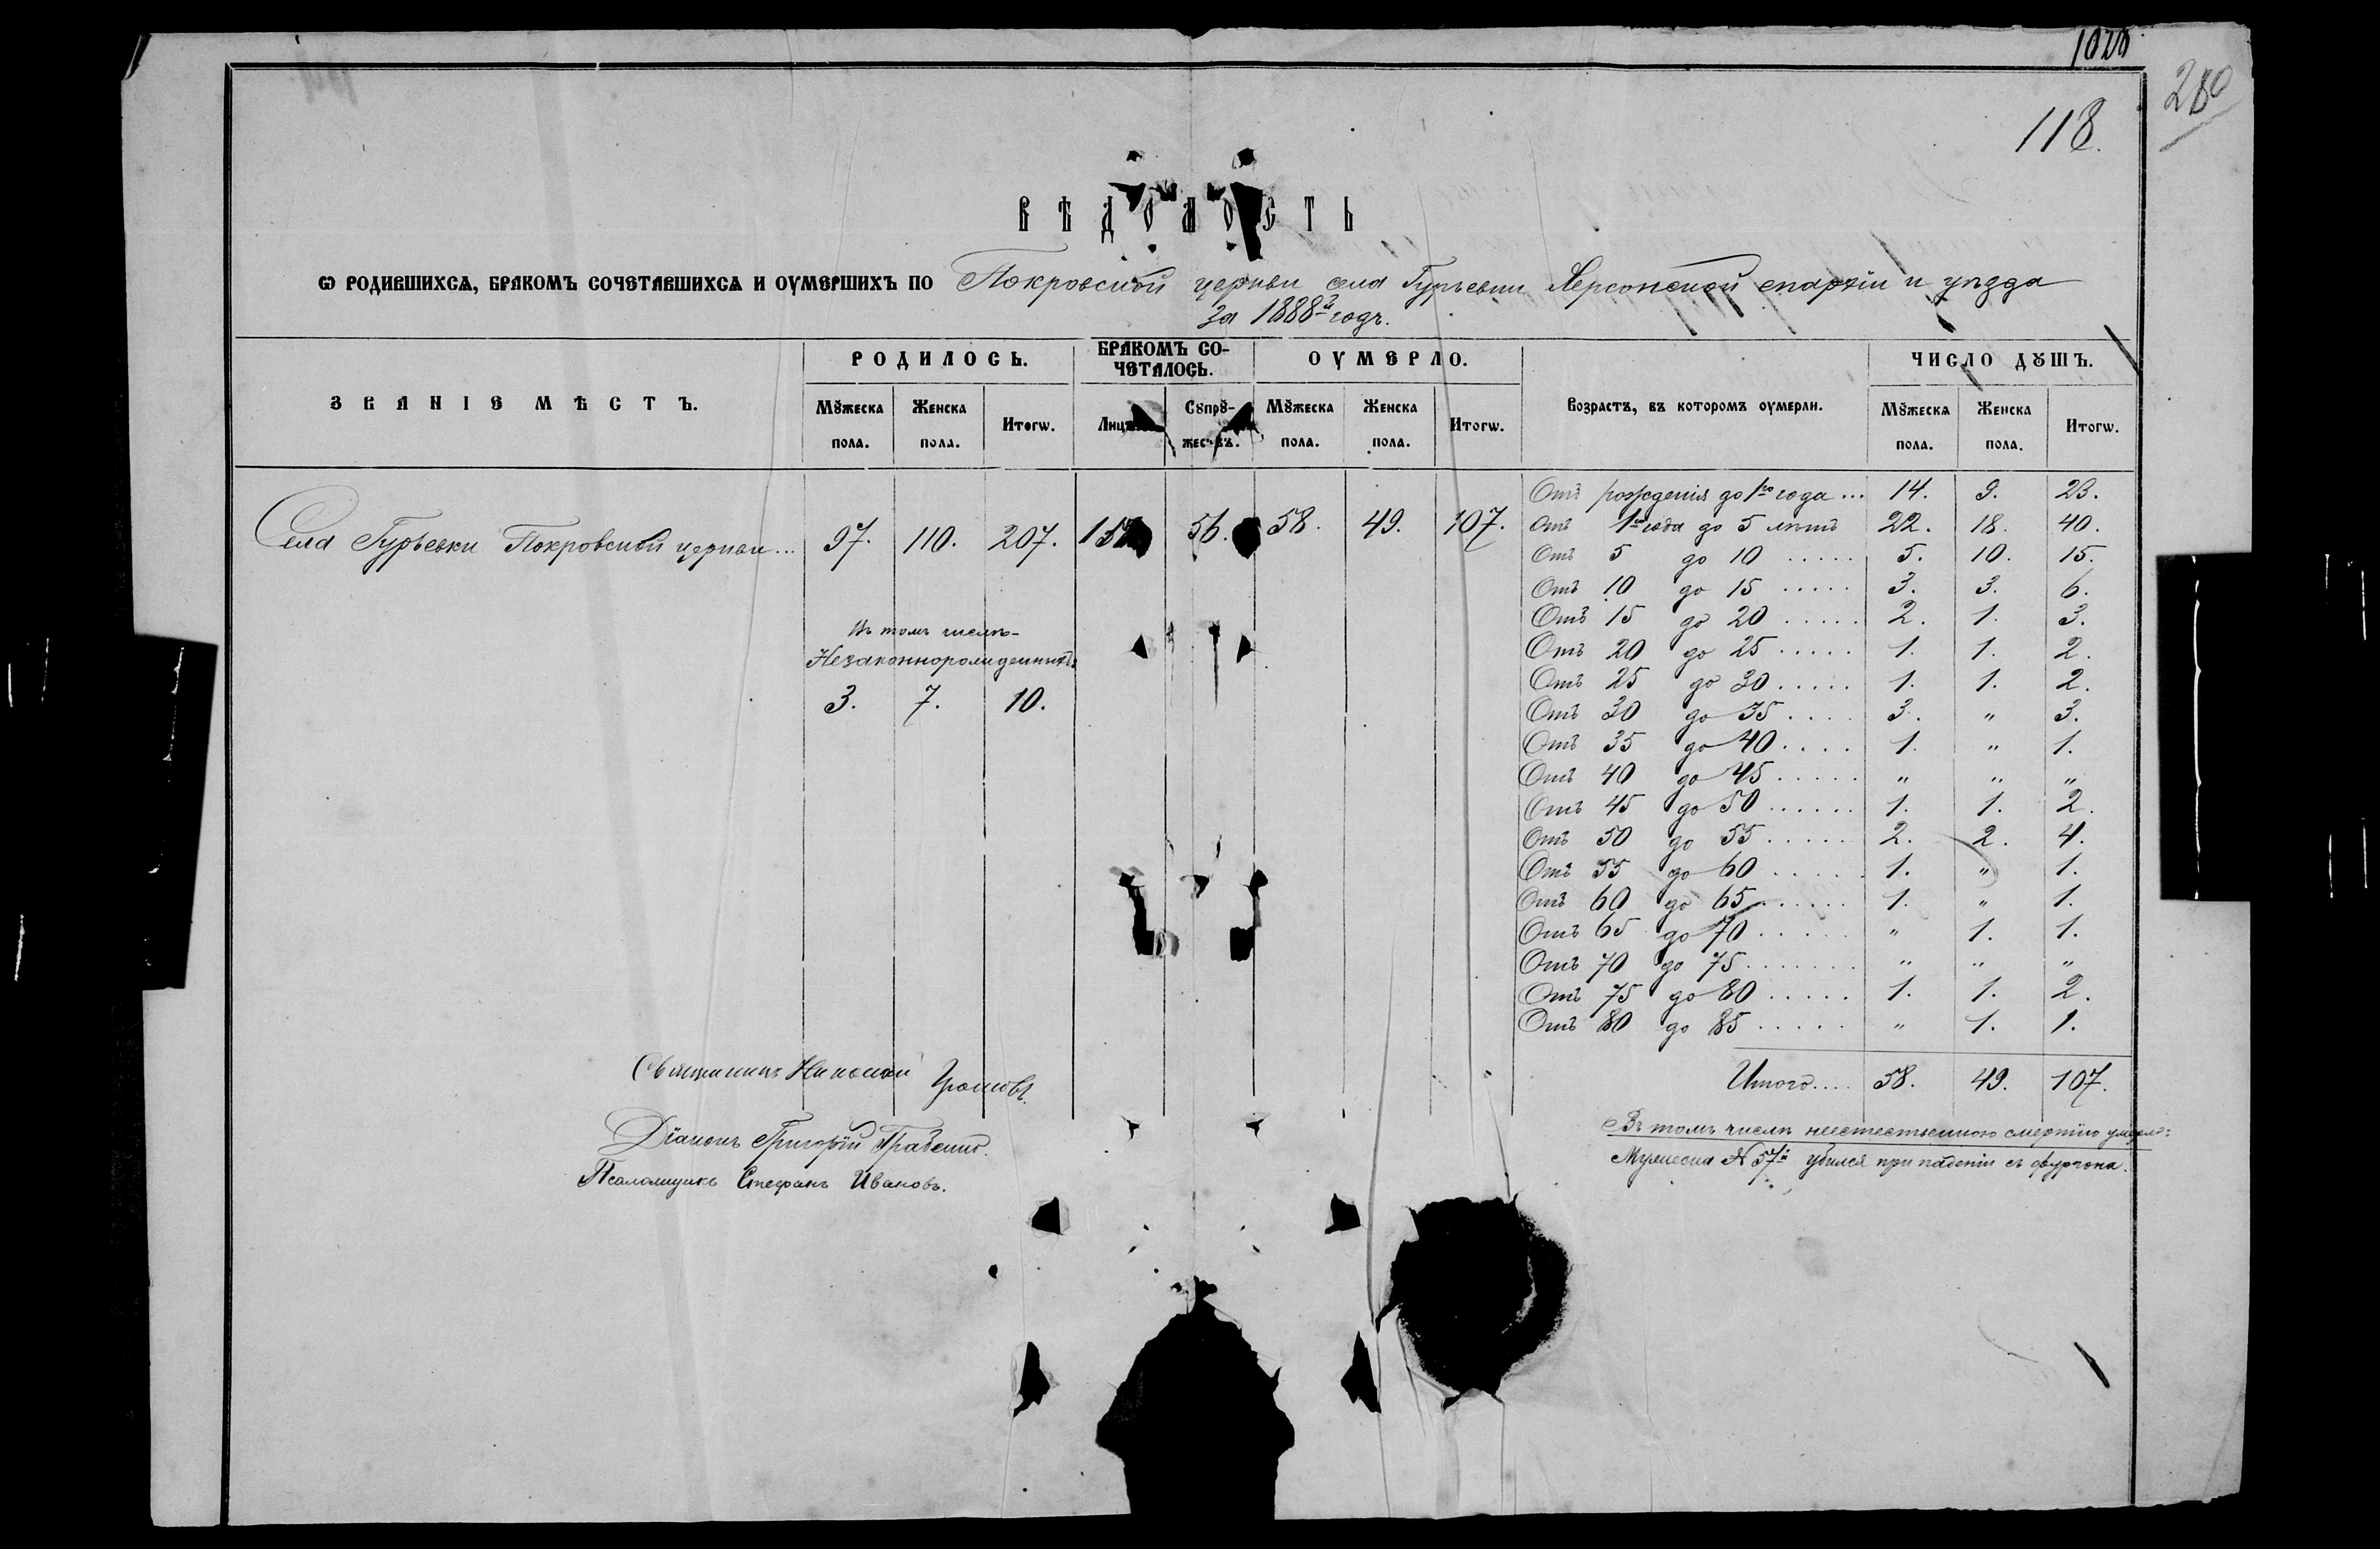 1028
280
118.
ВѢДОМОСТЬ
Ѡ РОДИВШИХСѦ, БРАКОМЪ СОЧЕТАВШИХСѦ И ОУМЕРШИХЪ ПО Покровской церкви села Гурьевки Херсонской епархіи и уѣзда
за 1888й годъ.
ЗВАНІЕ МѢСТЪ. РОДИЛОСЬ. БРАКОМЪ СО-ЧЕТАЛОСЬ. ОУМЕРЛО. Возрастъ, въ которомъ оумерли. ЧИСЛО ДꙊШЪ.
Мꙋжеска пола. Женска пола. Итогѡ. Сꙋпрꙋ-жествъ. Мꙋжеска пола. Женска пола. Итогѡ. Мꙋжеска пола. Женска пола. Итогѡ.
Села Гурьевки Покровской церкви... 97. 110. 207. 56. 58. 49. 107.
Въ томъ числѣ-
Незаконнорожденныхъ:
3. 7. 10.
Отъ рожденія до 1го года... 14. 9. 23.
Отъ 1го года до 5 лѣтъ 22. 18. 40.
Отъ 5 до 10 ..... 5. 10. 15.
Отъ 10 до 15 ..... 3. 3. 6.
Отъ 15 до 20 ..... 2. 1. 3.
Отъ 20 до 25 ..... 1. 1. 2.
Отъ 25 до 30 ..... 1. 1. 2.
Отъ 30 до 35 .... 3. " 3.
Отъ 35 до 40 .... 1. " 1.
Отъ 40 до 45 ..... " " "
Отъ 45 до 50 ...... 1. 1. 2.
Отъ 50 до 55 ..... 2. 2. 4.
Отъ 55 до 60 ..... 1. " 1.
Отъ 60 до 65 ...... 1. " 1.
Отъ 65 до 70 ..... " 1. 1.
Отъ 70 до 75 ....... " " "
Отъ 75 до 80 ..... 1. 1. 2.
Отъ 80 до 85 ..... " 1. 1.
Итого.... 58. 49. 107.
Въ томъ числѣ неестественною смертію умерло:
Мужеска № 57й убился при паденіи съ фургона.
Священникъ Николай
Діаконъ Григорій
Псаломщикъ Стефанъ Ивановъ.